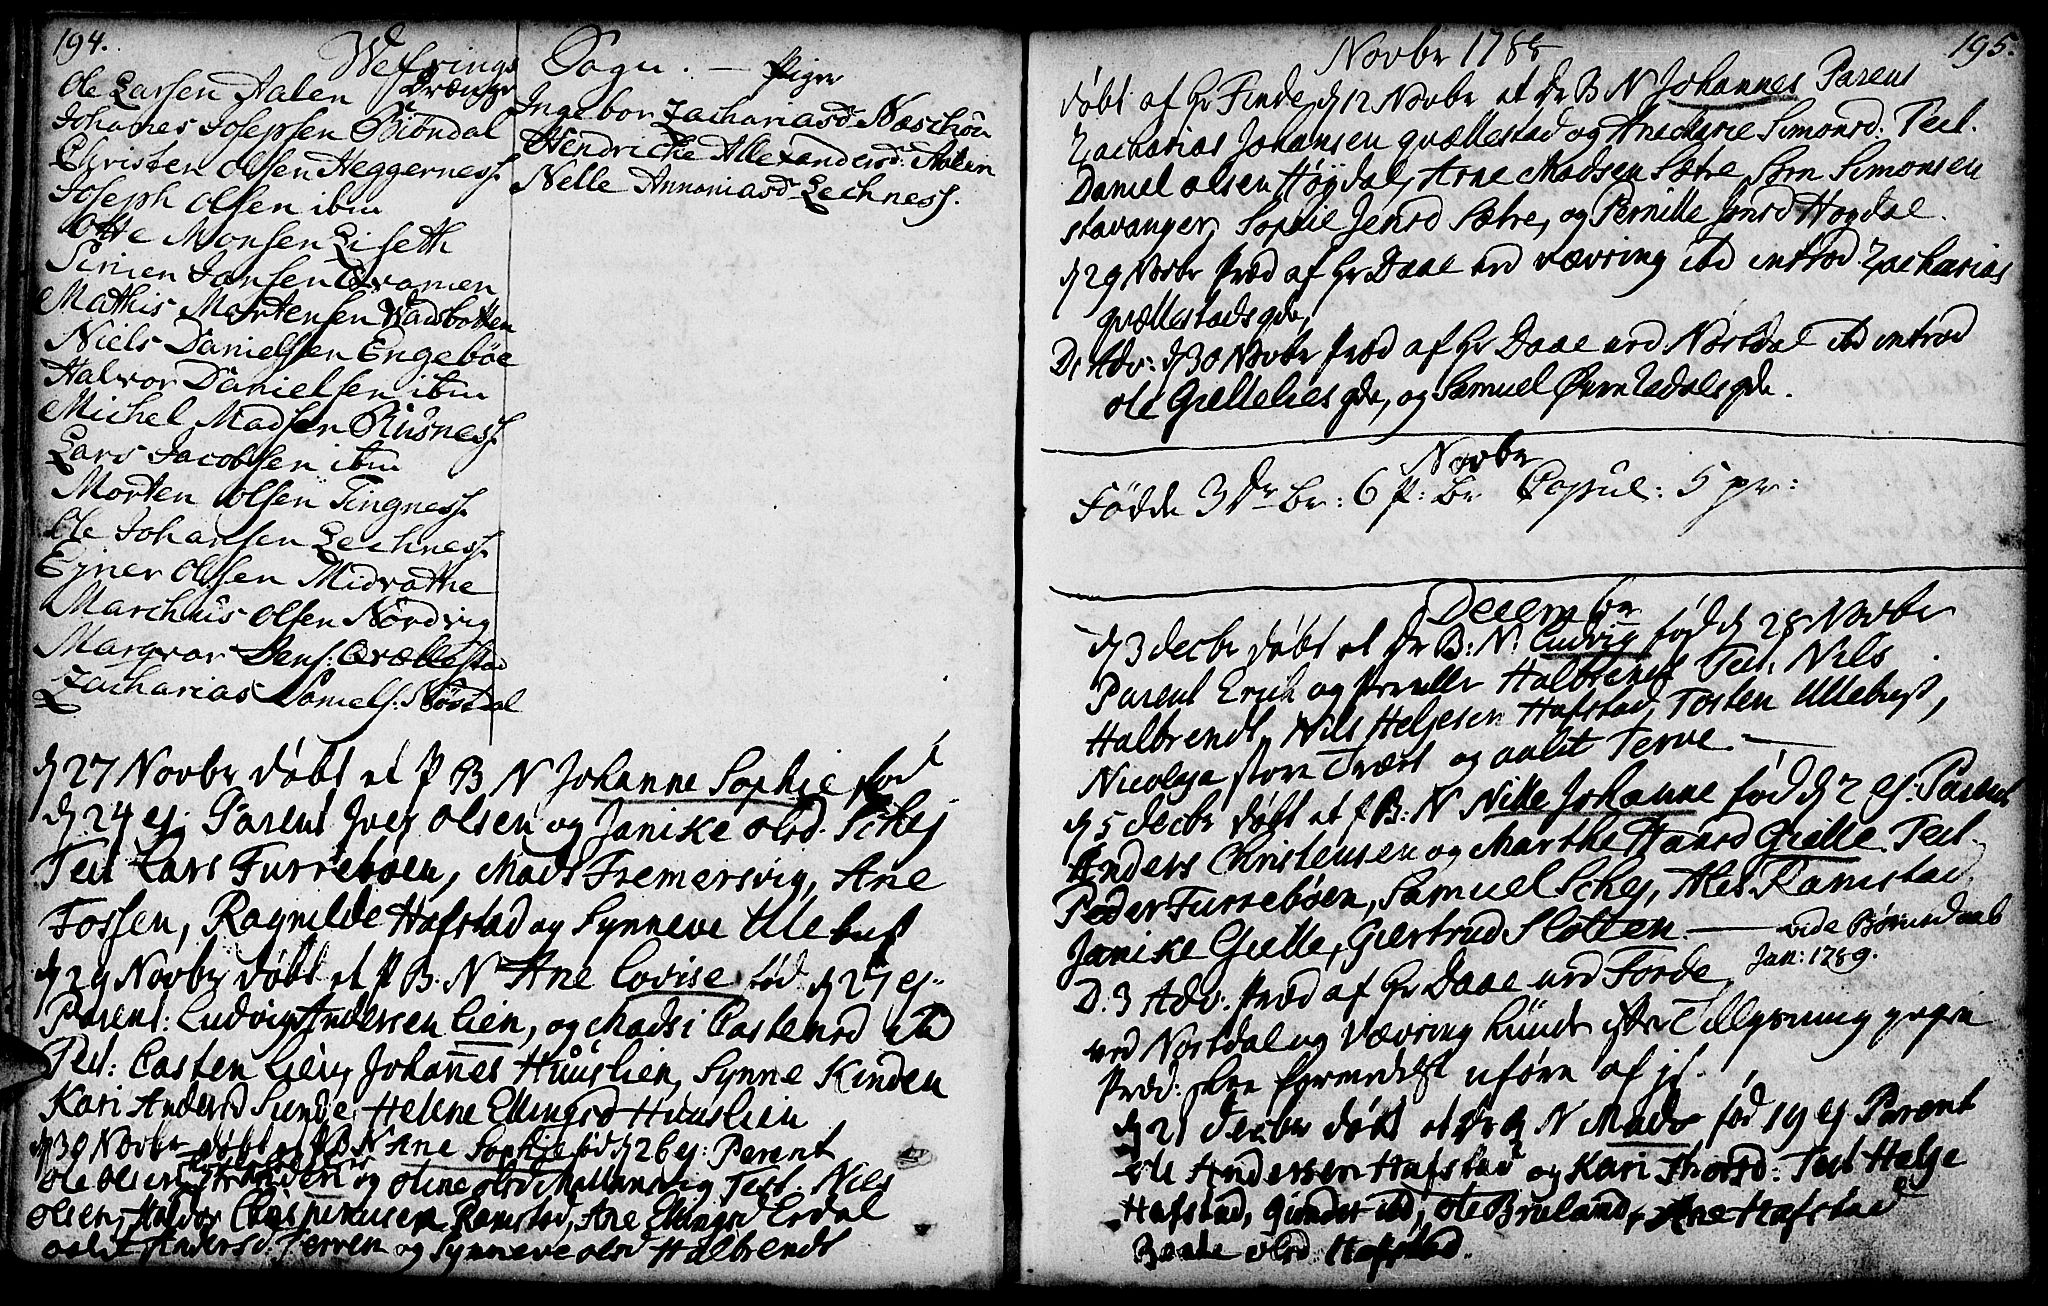 194.
Wefrings Sogn. —
Drænge
Piger
Ole Larsen Aalen
Johanes Josepsen Biöndal
Christen olsen Heggerness.
Joseph olsen ibm
Otte Monsen Liseth
Simen Jansen Qvamen
Mathis Mortensen Vadsbotten
Niels Danielsen Engebøe
Halvor Danielsen ibm
Michel Madsen Riisness
Lars Jacobsen ibm
Morten olsen Tingness.
Ole Johansen Lechness.
Ejner olsen Midvathe
Marchus olsen Nördvig
Margvar Dens: Qvællestad
Zacharias Daniels: Nösdal
Ingebor Zachariasd Næschøu
Hendriche Allexandersd: Aalen
Nelle Annaniasd Lechness.
d 27 Novbr døbt et P B N Johanne Sophie fød
d 24 ej. Parent Iver olsen og Janike olsd. Schej
Test Lars Furrebøen, Mads Fremersvig, Ane
Fossen, Ragnilde Hafstad og Synneve Ullebust
d 29 Novbr døbt et P B: N Ane Lovise fød d 27 ej.
Parent: Ludvig Andersen Lien, og Madsi Castensd ibd
Test: Casten Lien, Johannes Huuslien, Synne Kinden
Kari Andersd Sunde, Helene Ellingsd Huuslien
d 30 Novbr døbt et P B N Ane Sophie fød d 26 ej: Parent
ole olsen og oline olsd Test. Nils
olsen, Haldor Ramstad, Ane Ellingsd Erdal
Andersd: Terven og Synneve olsd Halbrendt
195.
Novbr 1788
døbt af Hr Finde, d 12 Novbr et Dr B N Johannes Parent
Zacharias Johansen qvællestad og Anemarie Simonsd: Test.
Daniel olsen Høydal, Arne Madsen Sætre, Sørn Simonsen
stavanger, Sophie Jensd Sætre, og Pernille Jonsd Høydal.
d 29 Novbr Præd af Hr Daae ved Vævring ibd introd Zacharias
qvællestads qde,
D: Adv: d 30 Novbr Præd af Hr Daae ved Nøstdal ibd introd
ole Giellelies qde, og Samuel qde.
Novbr
Fødde 3 Dr Br: 6 P: Br Copul: 5 pr:
December
d 3 decbr døbt et Dr B: N: Ludvig fød d 28 Novbr
Parent Erich og Pernille Halbrendt Test. Nils
Halbrendt, Nils Helgesen Hafstad, Tosten Ullebust,
Nicolya store Træet og aalit Terve. —
d 5 decbr døbt et P B: N Nille Johanne fød d 2 ej: Parent
Anders Christensen og Marthe Hansd Gielle. Test.
Peder Furrebøen, Samuel Schej, Ales Ramstad,
Janike Gielle, Giertrud Slotten. — vide Børnedaab
Jan: 1789.
D. 3 Adv: Præd af Hr Daae ved Førde,
ved Nøstdal og Vævring kunde efter Tillysning ingen
Præd: skee formedelst uføre af js.
d 21 decbr døbt et Dr B N Mads fød 19 ej Parent
ole Andersen Hafstad og Kari Thorsd: Test Helge
Hafstad, Gunder ibd, ole Bruland, Ane Hafstad
olsd Hafstad.